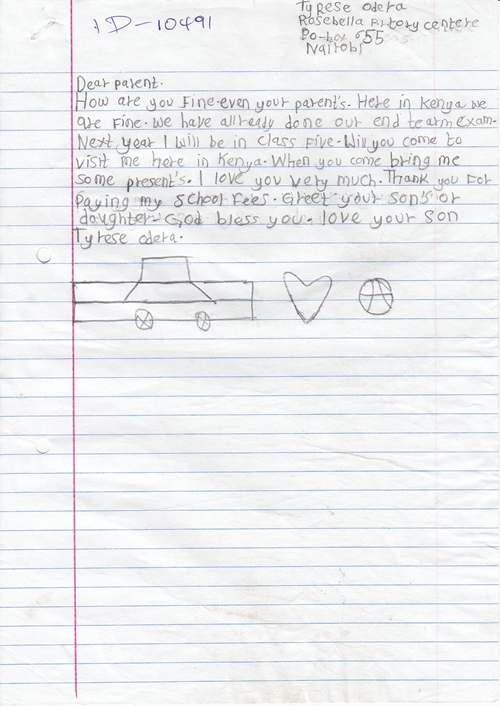 ID-10491
Tyrese odera
Rosebella Ritory centere
Po-box 655
Nairobi
Dear parent.
How are you Fine-even your parent's. Here in kenya we
are Fine. We have allready done our end tearm exam.
Next year I will be in class Five. Will you come to
visit me here in Kenya. When you come bring me
some present's. I love you very much. Thank you For
Paying my School Fees. Greet your son's or
daughter. God bless you. love your son
Tyrese odera.